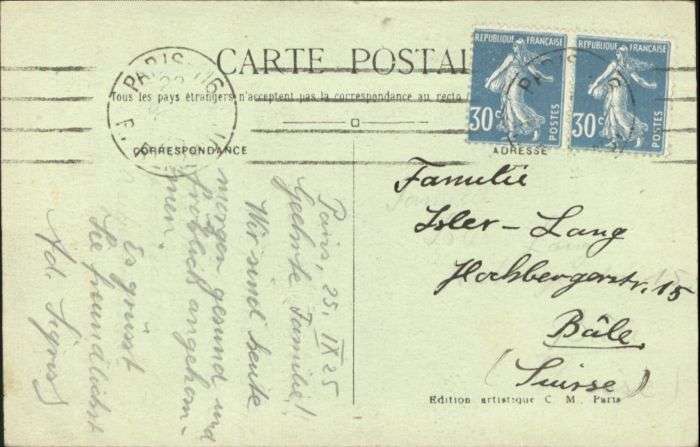 CARTE POSTAL
Tous les pays étrangers n'acceptent pas la correspondance au recto
CORRESPONDANCE
ADRESSE
REPUBLIQUE FRANÇAISE
30c
POSTES
REPUBLIQUE FRANÇAISE
30c
POSTES
PARIS
PARIS
Paris, 25. IX 25
Geehrte Familie!
Wir sind heute
morgen gesund und
fröhlich angekom-
men.
Es grüsst
Sie freundlichst
Ad.
Familie
Isler-Lang
Hochbergerstr. 15
Bâle
(Suisse)
Edition artistique C. M. Paris